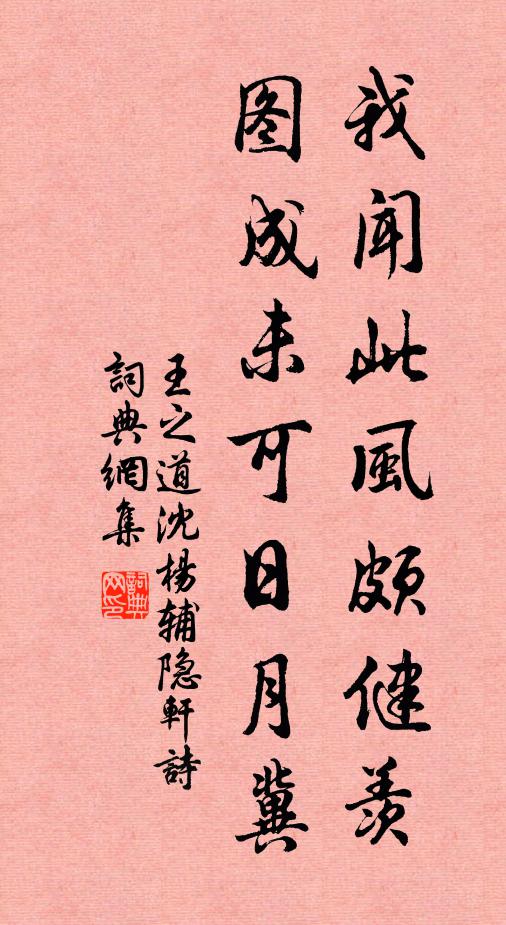 我闻此風頗健羨
图成未可日月冀
王之道沈楊辅隐軒詩
詞典網集
詞典网印